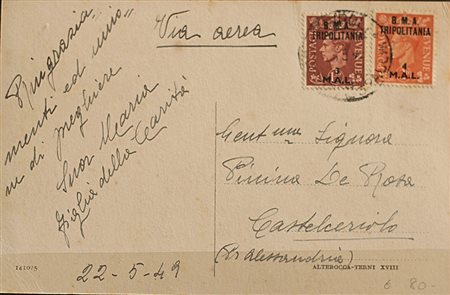 Via aerea
B.M.A.
TRIPOLITANIA
M.A.L.
POSTAGE
REVENUE
B.M.A.
TRIPOLITANIA
4
M.A.L.
REVENUE
Ringrazia„
menti ed unio„
ne di preghiere
Suor Maria
figlia della Carità
22-5-49
Gent ma Signora
Pinina De Rosa
Castelceriolo
(Alessandria)
141075
ALTEROCCA-TERNI XVIII
€ 80-